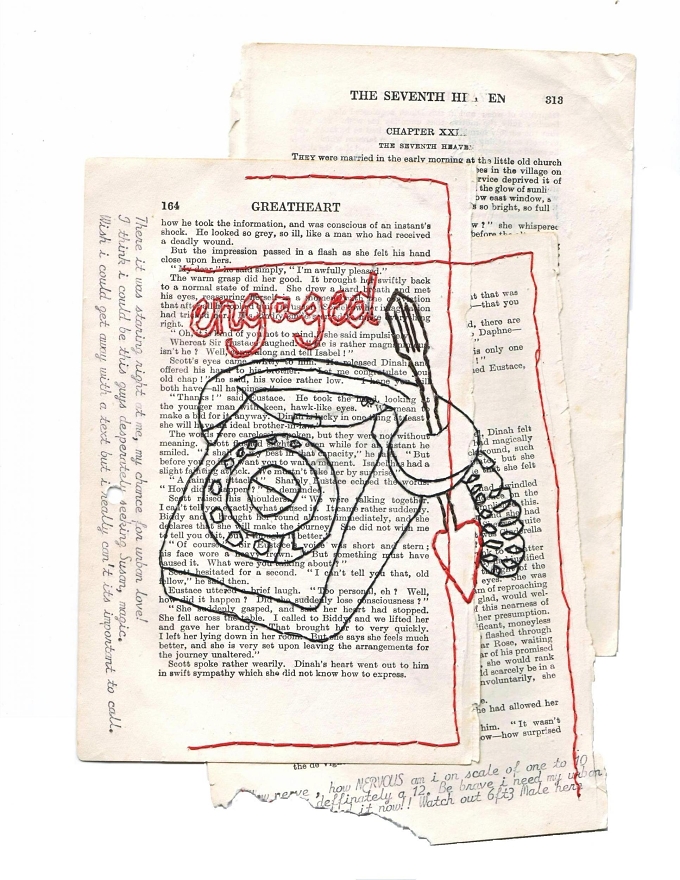 THE SEVENTH HE EN 313
CHAPTER XXI
THE SEVENTH HEAVE
THEY were married in the early morning at the little old church
es in the village on
rvice deprived it of
the glow of sunli
ow east window, a
s so bright, so full
w?" she whispered
before the
164 GREATHEART
how he took the information, and was conscious of an instant's
shock. He looked so grey, so ill, like a man who had received
a deadly wound.
But the impression passed in a flash as she felt his hand
close upon hers.
"My dear," he said simply, "I'm awfully pleased."
The warm grasp did her good. It brought her swiftly back
to a normal state of mind. She drew a hard breath and met
his eyes,
that
had
right.
engaged
"Oh, kind of you not to mind," she said impulsively
Whereat Sir Eustace laughed. is rather magnan
isn't he? Well, along and tell Isabel!"
Scott's eyes came to him. He released Dinah
offered his hand to his brother. "Let me congratulate you
old chap!" he said, his voice rather low. "I hope you will
both have all happiness."
"Thanks!" said Eustace. He took the hand, looking at
the younger man with keen, hawk-like eyes. "We mean
make a bid for it anyway. Dinah is lucky in one thing at least
she will have an ideal brother-in-law."
The words were carelessly spoken, but they were not without
meaning. Scott flushed slightly, even while for an instant he
smiled. "I shall do my best in that capacity," he said. "But
before you go I want you to wait a moment. Isabel has had a
slight fainting attack. We mustn't take her by surprise."
"A Sharply Eustace echoed the words.
"How did it happen?" he demanded.
Scott raised his shoulders. "We were talking together.
I can't tell you exactly what caused it. It came rather suddenly.
Biddy and I brought her round almost immediately, and she
declares that she will make the journey. She did not wish me
to tell you of it, but I thought it better."
"Of course," Sir Eustace's voice was short and stern;
his face wore a heavy frown. "But something must have
caused it. What were you talking about?"
Scott hesitated for a second. "I can't tell you that, old
fellow," he said then.
Eustace uttered a brief laugh. "Too personal, eh? Well,
how did it happen? Did she suddenly lose consciousness?"
"She suddenly gasped, and said her heart had stopped.
She fell across the table. I called to Biddy, and we lifted her
and gave her brandy. That brought her to very quickly.
I left her lying down in her room. But she says she feels much
better, and she is very set upon leaving the arrangements for
the journey unaltered."
Scott spoke rather wearily. Dinah's heart went out to him
in swift sympathy which she did not know how to express.
There it was staring right at me, my chance for urban love!
I think i could be this guys desperately seeking Susan, magic.
Wish i could get away with a text but i really can't its important to call.
t that was
—that you
d, there are
Daphne—
is only one
ed Eustace,
Dinah felt
d magically
ound, such
but she
t she felt
dwindled
n this.
she had
quite
eyes. She was
m of reproaching
glad, would wel-
this nearness of
her presumption.
ificant, moneyless
flashed through
ar Rose, waiting
ar of his promised
, she would rank
d scarcely be in a
nvoluntarily, she
he had allowed her
him. "It wasn't
ow—how surprised
the de Vig
nerve, how NERVOUS am i on scale of one to 10
deffinately a 12. Be brave i need my urban
it now!! Watch out 6ft3 Male here